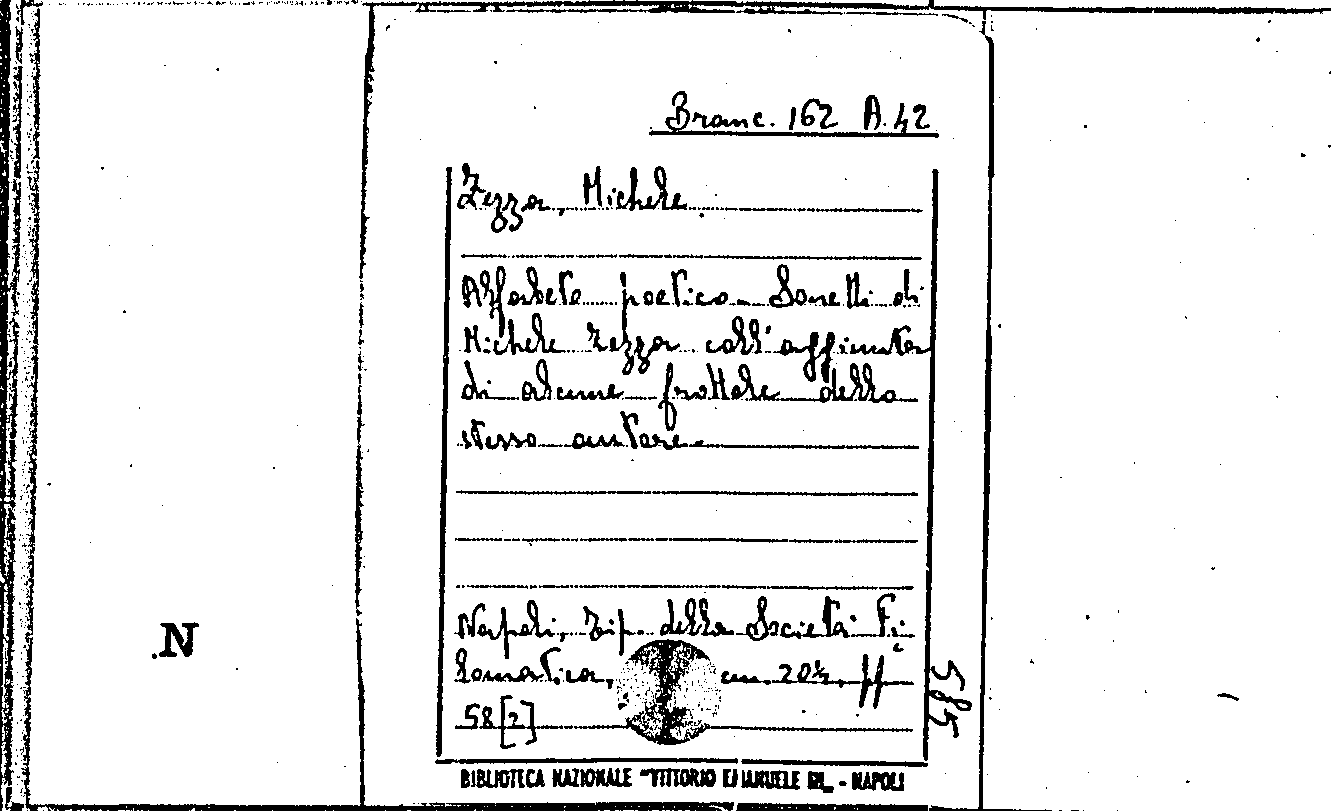 Branc. 162 A. 42
Zezza, Michele.
Alfabeto poetico. Sonetti di
Michele Zezza coll'aggiunta
di alcune frottole dello
stesso autore.
Napoli, Tip. della Società Fi
lomatica, cm. 20½, pp
58 [2]
585
N
BIBLIOTECA NAZIONALE "VITTORIO EMANUELE III" - NAPOLI